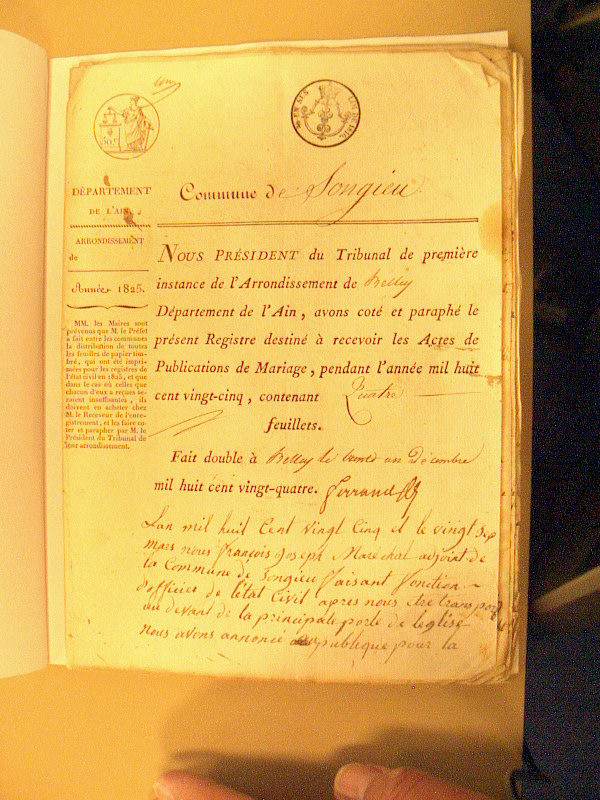 50 C
DÉPARTEMENT
DE L'AIN.
ARRONDISSEMENT
de
Année 1825.
MM. les Maires sont
prévenus que M. le Préfet
a fait entre les communes
la distribution de toutes
les feuilles de papier tim-
bré, qui ont été impri-
mées pour les registres de
l'état civil en 1825, et que
dans le cas où celles que
chacun d'eux a reçues se-
raient insuffisantes, ils
doivent en acheter chez
M. le Receveur de l'enre-
gistrement, et les faire co-
ter et parapher par M. le
Président du Tribunal de
leur arrondissement.
Commune de Songieu.
NOUS PRÉSIDENT du Tribunal de première
instance de l'Arrondissement de Belley
Département de l'Ain, avons coté et paraphé le
présent Registre destiné à recevoir les Actes de
Publications de Mariage, pendant l'année mil huit
cent vingt-cinq, contenant Quatre
feuillets.
Fait double à Belley le trente un Décembre
mil huit cent vingt-quatre.
Lan mil huit Cent vingt Cinq et le vingt sep
mars nous françois Joseph Marechal adjoint de
la Commune de Songieu faisant fonction
d'officier de l'état Civil apres nous etre transpor
au devant de la principale porte de leglise
nous avons annoncé au publique pour la